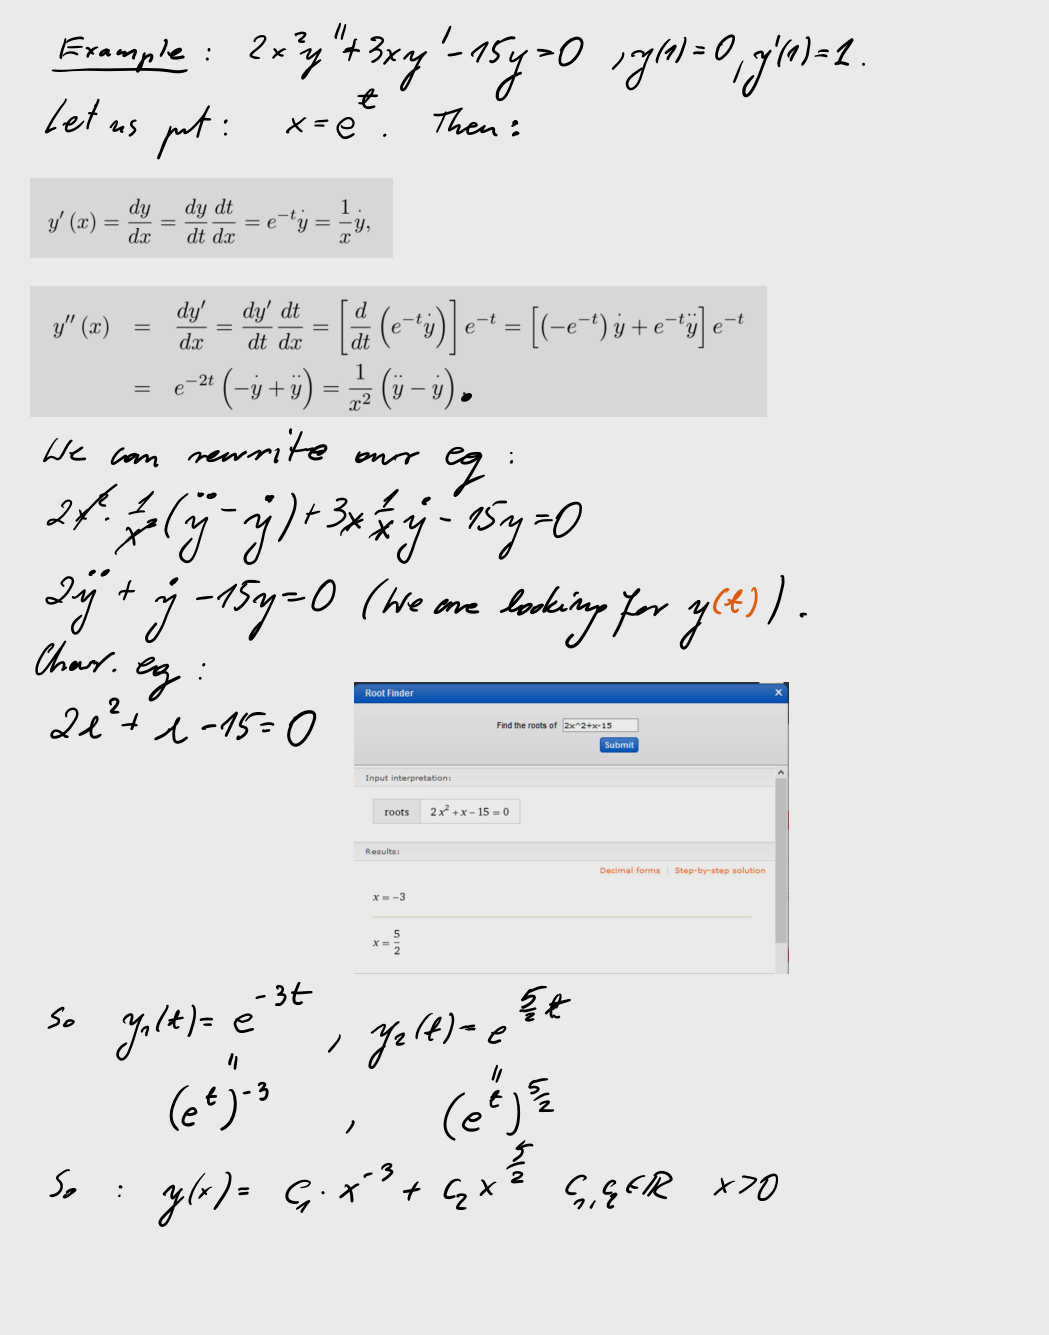 Example : 2x²y'' + 3xy' - 15y = 0 , y(1) = 0, y'(1) = 1.
Let us put : x = e^t . Then :
y′(x) = dy/dx = dy/dt dt/dx = e^{-t}ẏ = 1/x ẏ,
y″(x) = dy′/dx = dy′/dt dt/dx = [d/dt (e^{-t}ẏ)] e^{-t} = [(-e^{-t}) ẏ + e^{-t}ÿ] e^{-t}
= e^{-2t} (-ẏ + ÿ) = 1/x² (ÿ - ẏ) .
We can rewrite our eq :
2x² · 1/x² (ÿ - ẏ) + 3x 1/x ẏ - 15y = 0
2ÿ + ẏ - 15y = 0 (We are looking for y(t)) .
Char. eq :
2r² + r - 15 = 0
Root Finder ×
Find the roots of 2x^2+x-15
Submit
Input interpretation:
roots 2x² + x - 15 = 0
Results:
Decimal forms | Step-by-step solution
x = -3
x = 5/2
So y₁(t) = e^{-3t} , y₂(t) = e^{5/2 t}
= =
(e^t)^{-3} , (e^t)^{5/2}
So : y(x) = C₁ · x^{-3} + C₂ x^{5/2} C₁, C₂ ∈ ℝ x > 0